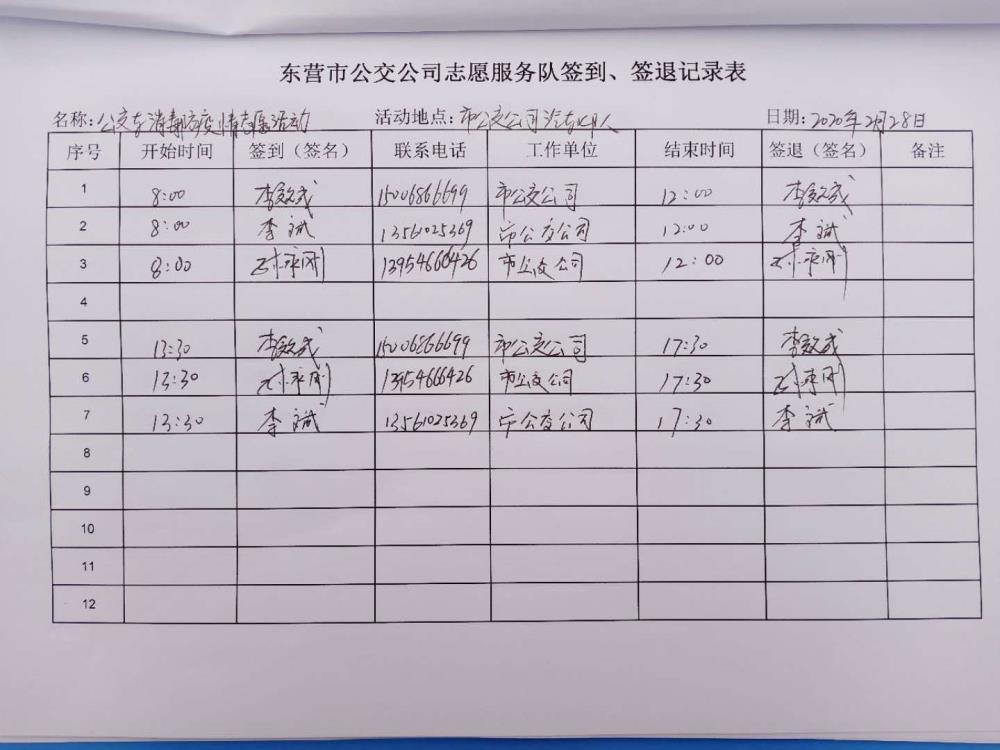 东营市公交公司志愿服务队签到、签退记录表
名称：公交车消毒防疫情志愿活动 活动地点：市公交公司汽车 日期：2020年2月28日
序号 开始时间 签到（签名） 联系电话 工作单位 结束时间 签退（签名） 备注
1 8:00 李敏成 15006866699 市公交公司 12:00 李敏成
2 8:00 李斌 13561025369 市公交公司 12:00 李斌
3 8:00 13954666426 市公交公司 12:00
4
5 13:30 李敏成 15006866699 市公交公司 17:30 李敏成
6 13:30 13954666426 市公交公司 17:30
7 13:30 李斌 13561025369 市公交公司 17:30 李斌
8
9
10
11
12